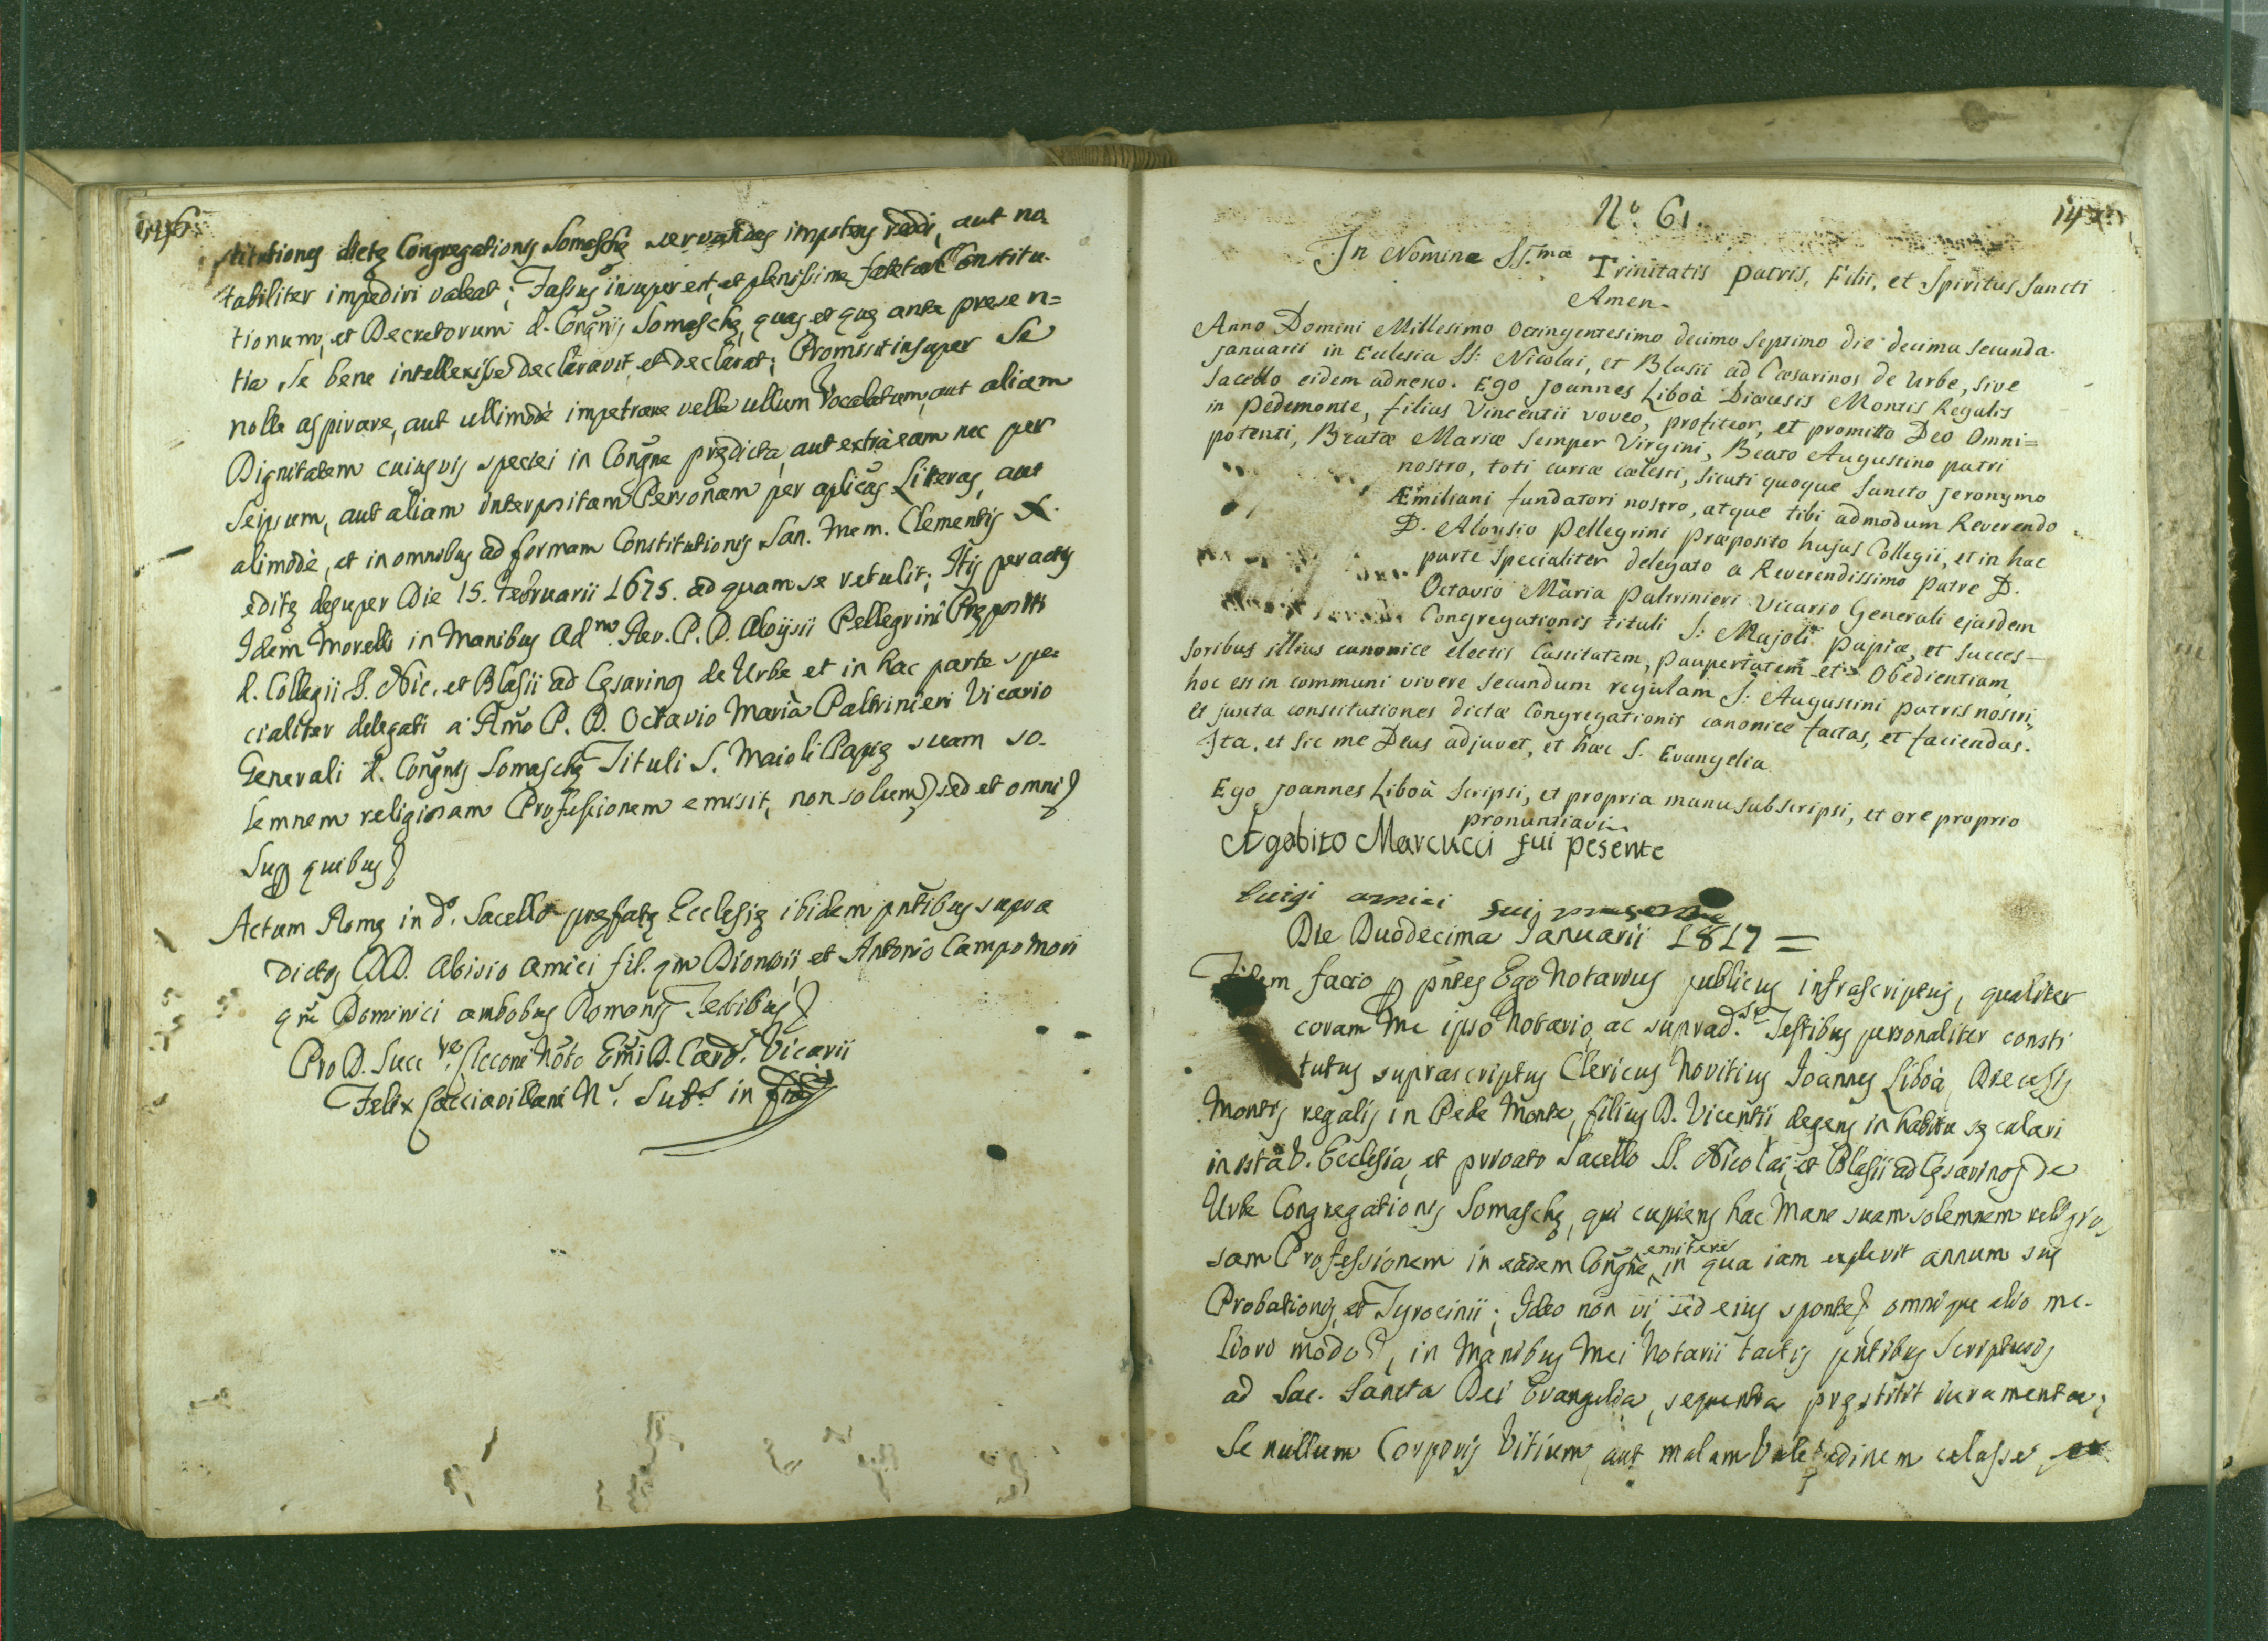 146
stitutiones dictę Congregationis Somaschę servandas impotens reddi, aut no=
tabiliter impediri valeat; Fassus insuper est, et plenissime fatetur Constitu-
tionum, et Decretorum d. Congñis Somaschę, quas et quę ante presen=
tia se bene intellexisse declaravit, et declarat; Promisit insuper se
nolle aspirare, aut ullimodè impetrare velle ullum Vocalatum, aut aliam
Dignitatem cuiusvis speciei in Congñe prędicta, aut extra eam nec per
seipsum, aut aliam interpositam Personam per aplicas Literas, aut
alimodè, et in omnibus ad formam Constitutionis San. Mem. Clementis X.
editę desuper Die 15. Februarii 1675. ad quam se retulit; Itis peractis
Idem Morelli in Manibus Adm. Rev. P. D. Aloijsii Pellegrini Prępositi
d. Collegii S. Nic. et Blasii ad Cęsarinos de Urbe et in hac parte spe=
cialiter delegati a Rmo P. D. Octavio Maria Paltrinieri Vicario
Generali d. Congñis Somaschę Tituli S. Maioli Papię suam so-
lemnem religiosam Professionem emisit, non solum) sed et omni)
Sup quibus)
Actum Romę in do. Sacello pręfatę Ecclesię ibidem pñtibus supra
dictis DD. Aloisio Amici fil. qm Dionisii, et Antonio Campomori
qm Dominici ambobus Romanis Testibus)
Pro D. Succ re. Ciccone Noto Emi D. Card. Vicarii
Felix Cacciavillani Ns. Subs. in fid
147
No. 61.
In Nomine SS.mae Trinitatis Patris, Filii, et Spiritus Sancti
Amen.
Anno Domini Millesimo Octingentesimo decimo septimo die decima secunda
januarii in Eclesia SS: Nicolai, et Blasii ad Cæsarinos de Urbe, sive
sacello eidem adnexo. Ego Joannes Liboà Diæcesis Montis Regalis
in Pedemonte, filius Vincentii voveo, profiteor, et promitto Deo Omni=
potenti, Beatæ Mariæ semper Virgini, Beato Augustino patri
nostro, toti curiæ cælesti, sicuti quoque Sancto Jeronymo
Æmiliani fundatori nostro, atque tibi admodum Reverendo
D. Aloysio Pellegrini Præposito hujus Collegii, et in hac
parte specialiter delegato a Reverendissimo Patre D.
Octavio Maria Paltrinieri Vicario Generali ejusdem
Congregationis tituli S: Majoli Papiæ, et succes-
soribus illius canonice electis Castitatem, Paupertatem et Obedientiam,
hoc est in communi vivere secundum regulam S: Augustini patris nostri,
et juxta constitutiones dictæ Congregationis canonice factas, et faciendas.
Ita, et sic me Deus adjuvet, et hæc S. Evangelia
Ego Joannes Liboà scripsi, et propria manu subscripsi, et ore proprio
pronuntiavi
Agabito Marcucci fui pesente
Luigi amici fui presente
Die Duodecima Januarii 1817 =
Fidem facio p pñtes Ego Notarius publicus infrascriptus, qualiter
coram Me ipso Notario, ac suprad. Testibus personaliter consti
tutus suprascriptus Clericus Novitius Joannes Liboà, Diecesis
Montis regalis in Pede Monte, filius D. Vicentii, degens in habitu sęculari
in ista V. Ecclesia, et privato Sacello SS. Nicolai, et Blasii ad Cęsarinos de
Urbe Congregationis Somaschę, qui cupiens hac Mane suam solemnem religio
sam Professionem in eadem Congñe emitere in qua iam explevit annum suę
Probationis, et Tyrocinii; Ideo non vi, sed eius sponte) omnique alio me-
liori modo), in Manibus Mei Notarii tactis pñtibus Scripturis
ad Sac. Sancta Dei Evangelia, sequentia pręstitit iuramenta;
Se nullum Corporis Vitium, aut malam Valetudinem celasse ex